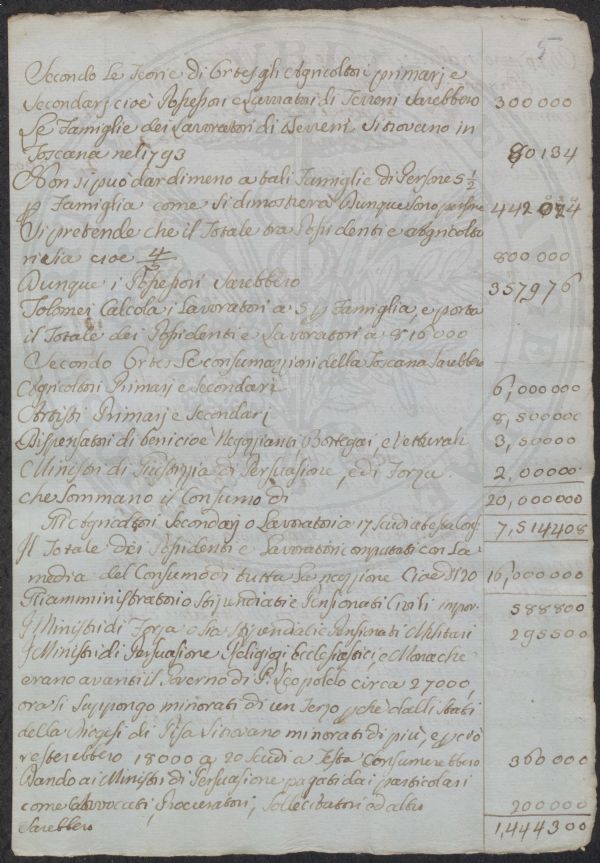 5
Secondo Le Teorie di Ortes gli Agricoltori primarj e
Secondarj cioè Possessori e Lavoratori di Terreni Sarebbero 300000
Le Famiglie dei Lavoratori di Terreni Si trovano in
Toscana nel 1793 80134
Non si può dar di meno a tali Famiglie di Persone 5 1/2
p Famiglia come si dimostrerà Dunque Sono persone 442074
Si pretende che il Totale tra Possidenti e Agricolto
ri sia cioè 4/5 800000
Dunque i Possessori Sarebbero 357976
Tolomei Calcola i Lavoratori a 5 p Famiglia, e porta
il Totale dei Possidenti e Lavoratori a 816000
Secondo Ortes Le consumazioni della Toscana Sarebbero
Agricoltori Primarj e Secondarj 6,000000
Artisti Primarj e Secondarj 8,500000
Dispensatori di beni cioè Negozianti, Bottegai, e Vetturali 3,50000
Ministri di Giustizia di Persuasione, e di Forza 2,00000
che Sommano il Consumo di 20,000000
Agricoltori Secondarj o Lavoratori a 17 Scudi a testa 7,514408
Il Totale dei Possidenti e Lavoratori computati con La
media del Consumo di tutta La nazione Cioè 20 16,000000
Stipendiati e Pensionati Civili 588800
Ministri di Forza o sia Stipendiati e Pensionati Militari 295500
Ministri di Persuasione Religiosi Ecclesiastici, e Monache
erano avanti il Governo di P. Leopoldo circa 27000,
ora si Suppongo minorati di un Terzo pche dalli Stati
della Diogesi di Pisa Si trovano minorati di più, e pciò
resterebbero 18000 a 20 Scudi a Testa Consumerebbero 360000
Dando ai Ministri di Persuasione pagati dai particolari
come Avvocati, Procuratori, Sollecitatori ed altri 200000
Sarebbero 1,444300